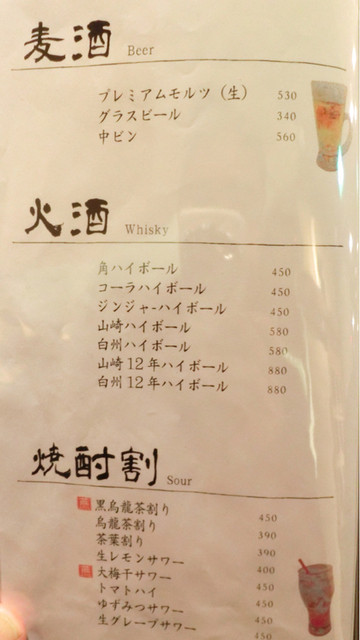 麦酒 Beer
プレミアムモルツ（生） 530
グラスビール 340
中ビン 560
火酒 Whisky
角ハイボール 450
コーラハイボール 450
ジンジャーハイボール 450
山崎ハイボール 580
白州ハイボール 580
山崎12年ハイボール 880
白州12年ハイボール 880
焼酎割 Sour
黒烏龍茶割り 450
烏龍茶割り 390
茶葉割り 390
生レモンサワー 400
大梅干サワー 450
トマトハイ 450
ゆずみつサワー 450
生グレープサワー 450